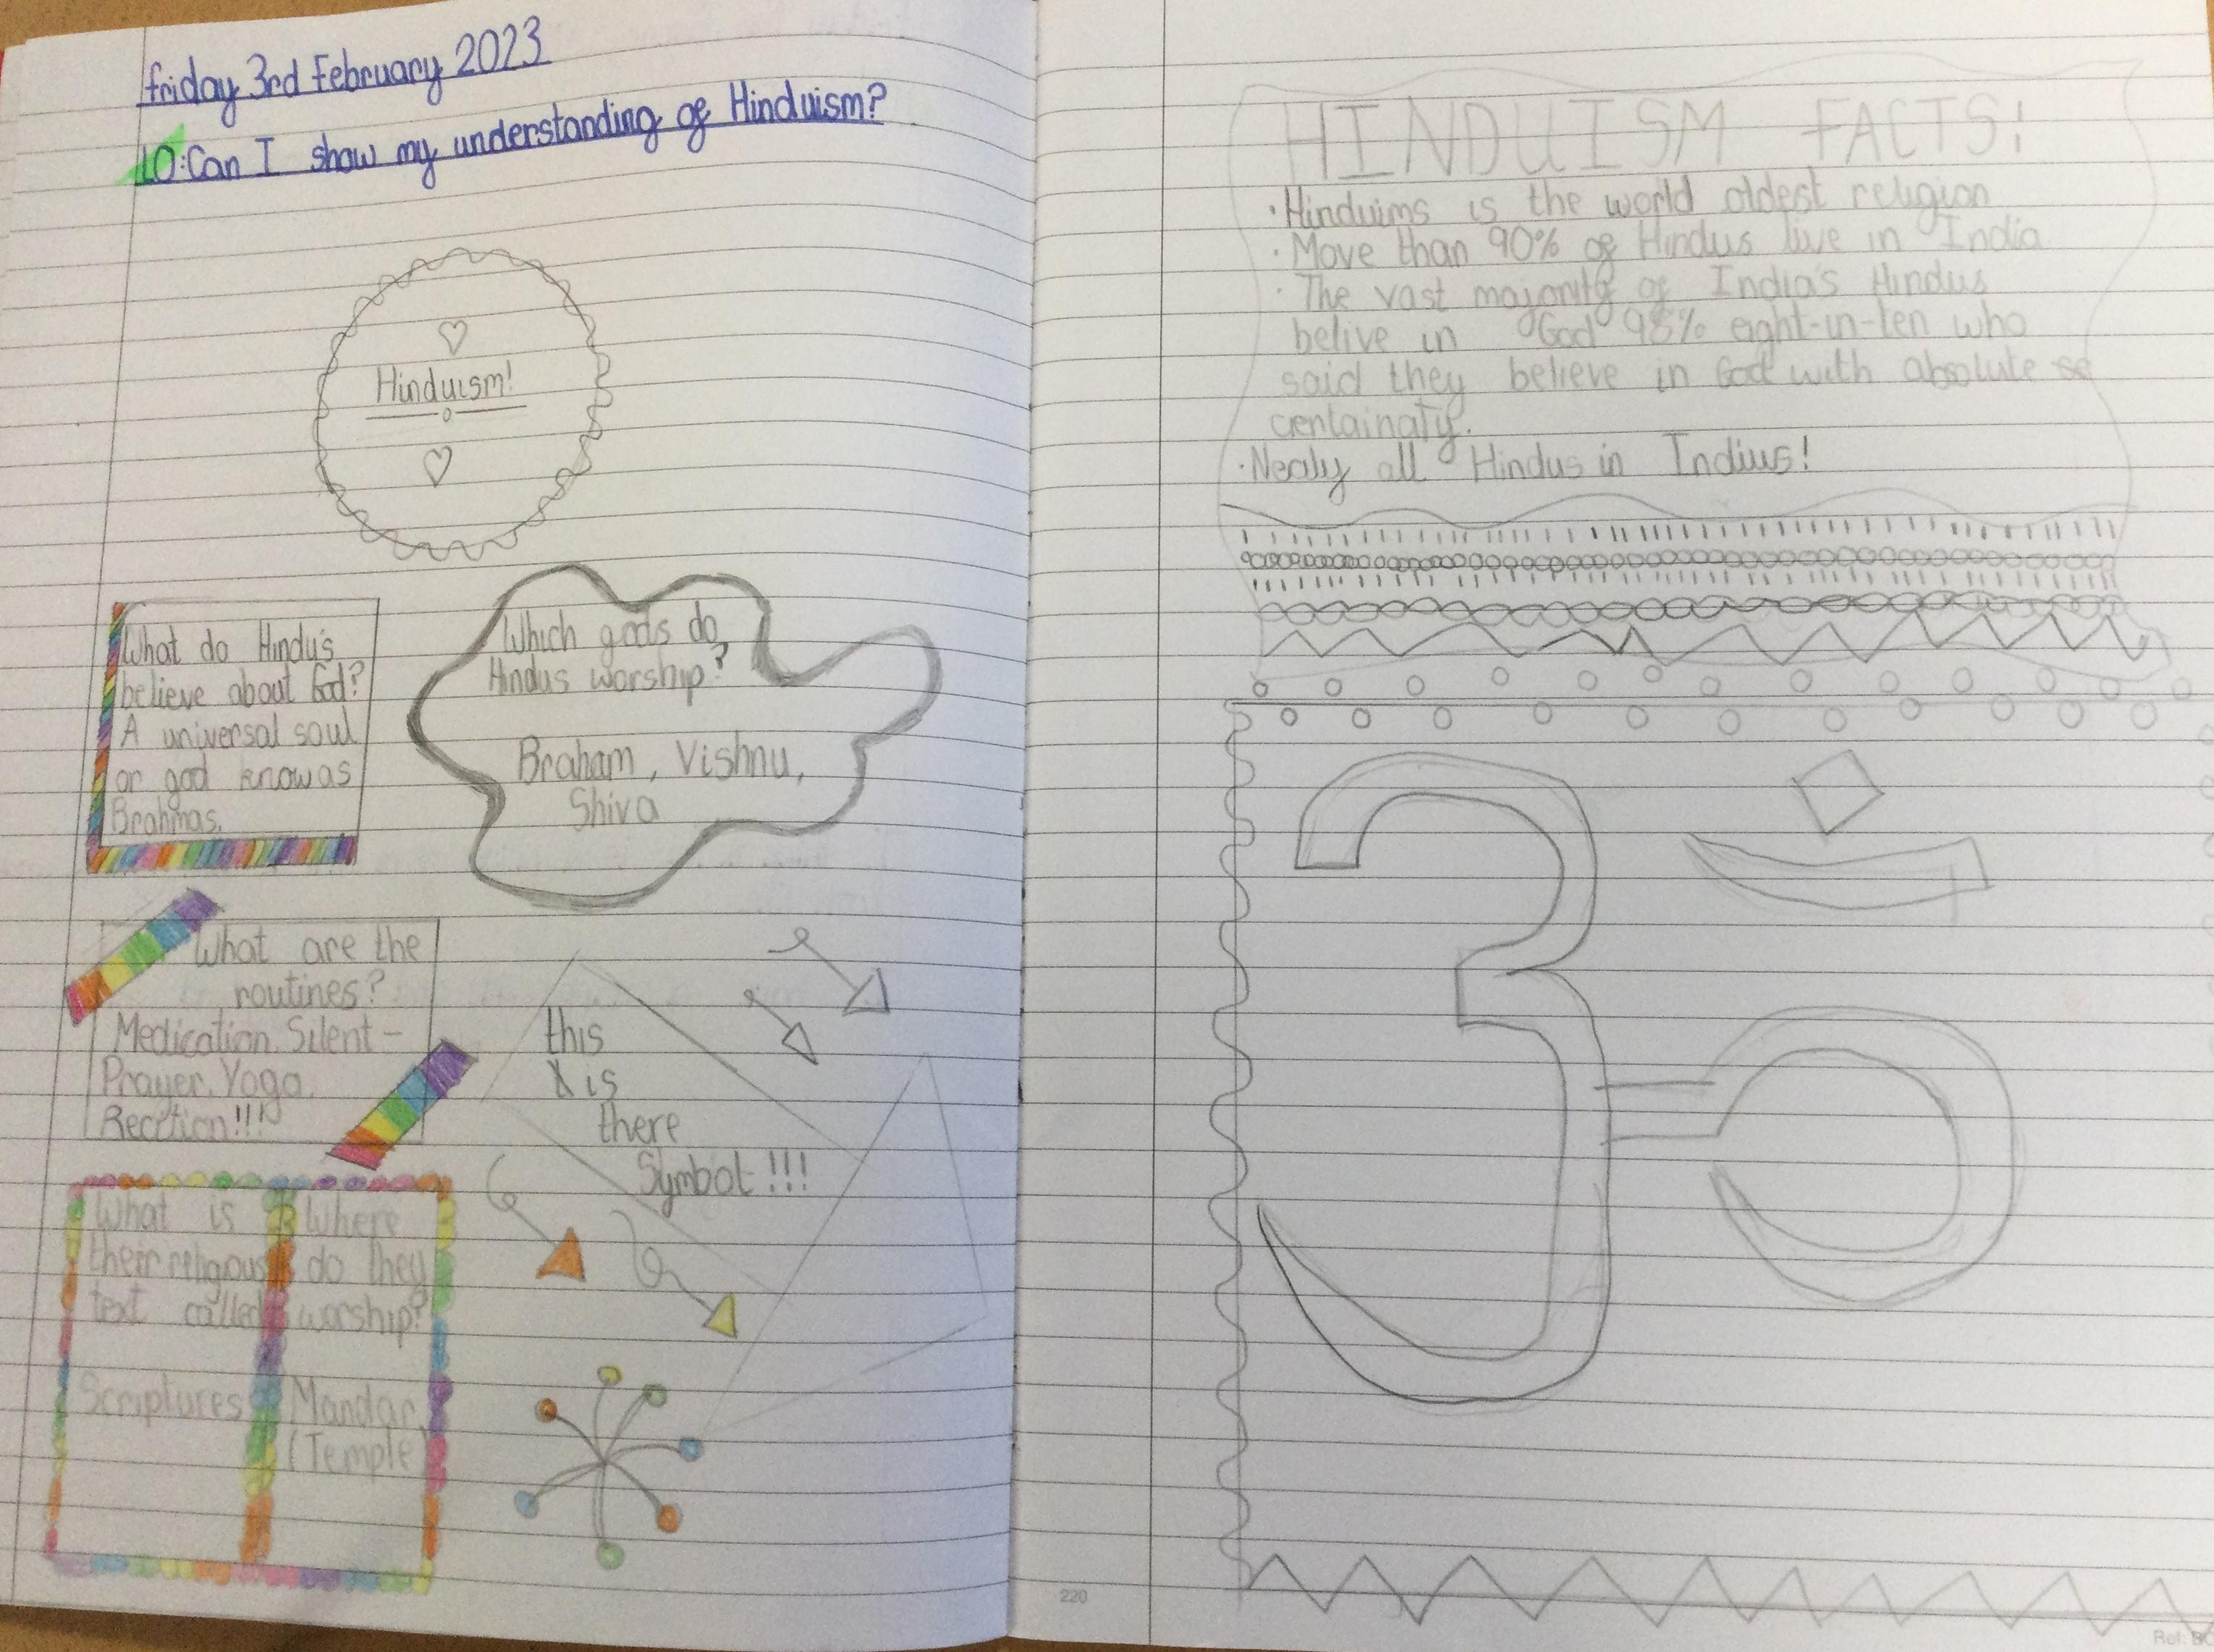 friday 3rd February 2023
LO: Can I show my understanding of Hinduism?
Hinduism!
What do Hindu's
believe about God?
A universal soul
or god know as
Brahmas.
Which gods do
Hindus worship?
Braham, Vishnu,
Shiva
What are the
routines?
Medication. Silent -
Prayer. Yoga.
Recrtion!!!
this
is
there
Symbol!!!
What is
their religous
text called
Scriptures
Where
do they
worship?
Mandar
(Temple)
HINDUISM FACTS!
· Hinduims is the world oldest religion
· More than 90% of Hindus live in India
· The vast majority of India's Hindus
belive in God 98% eight-in-ten who
said they believe in God with absolute se
centainaty.
· Nealy all Hindus in Indius!
220